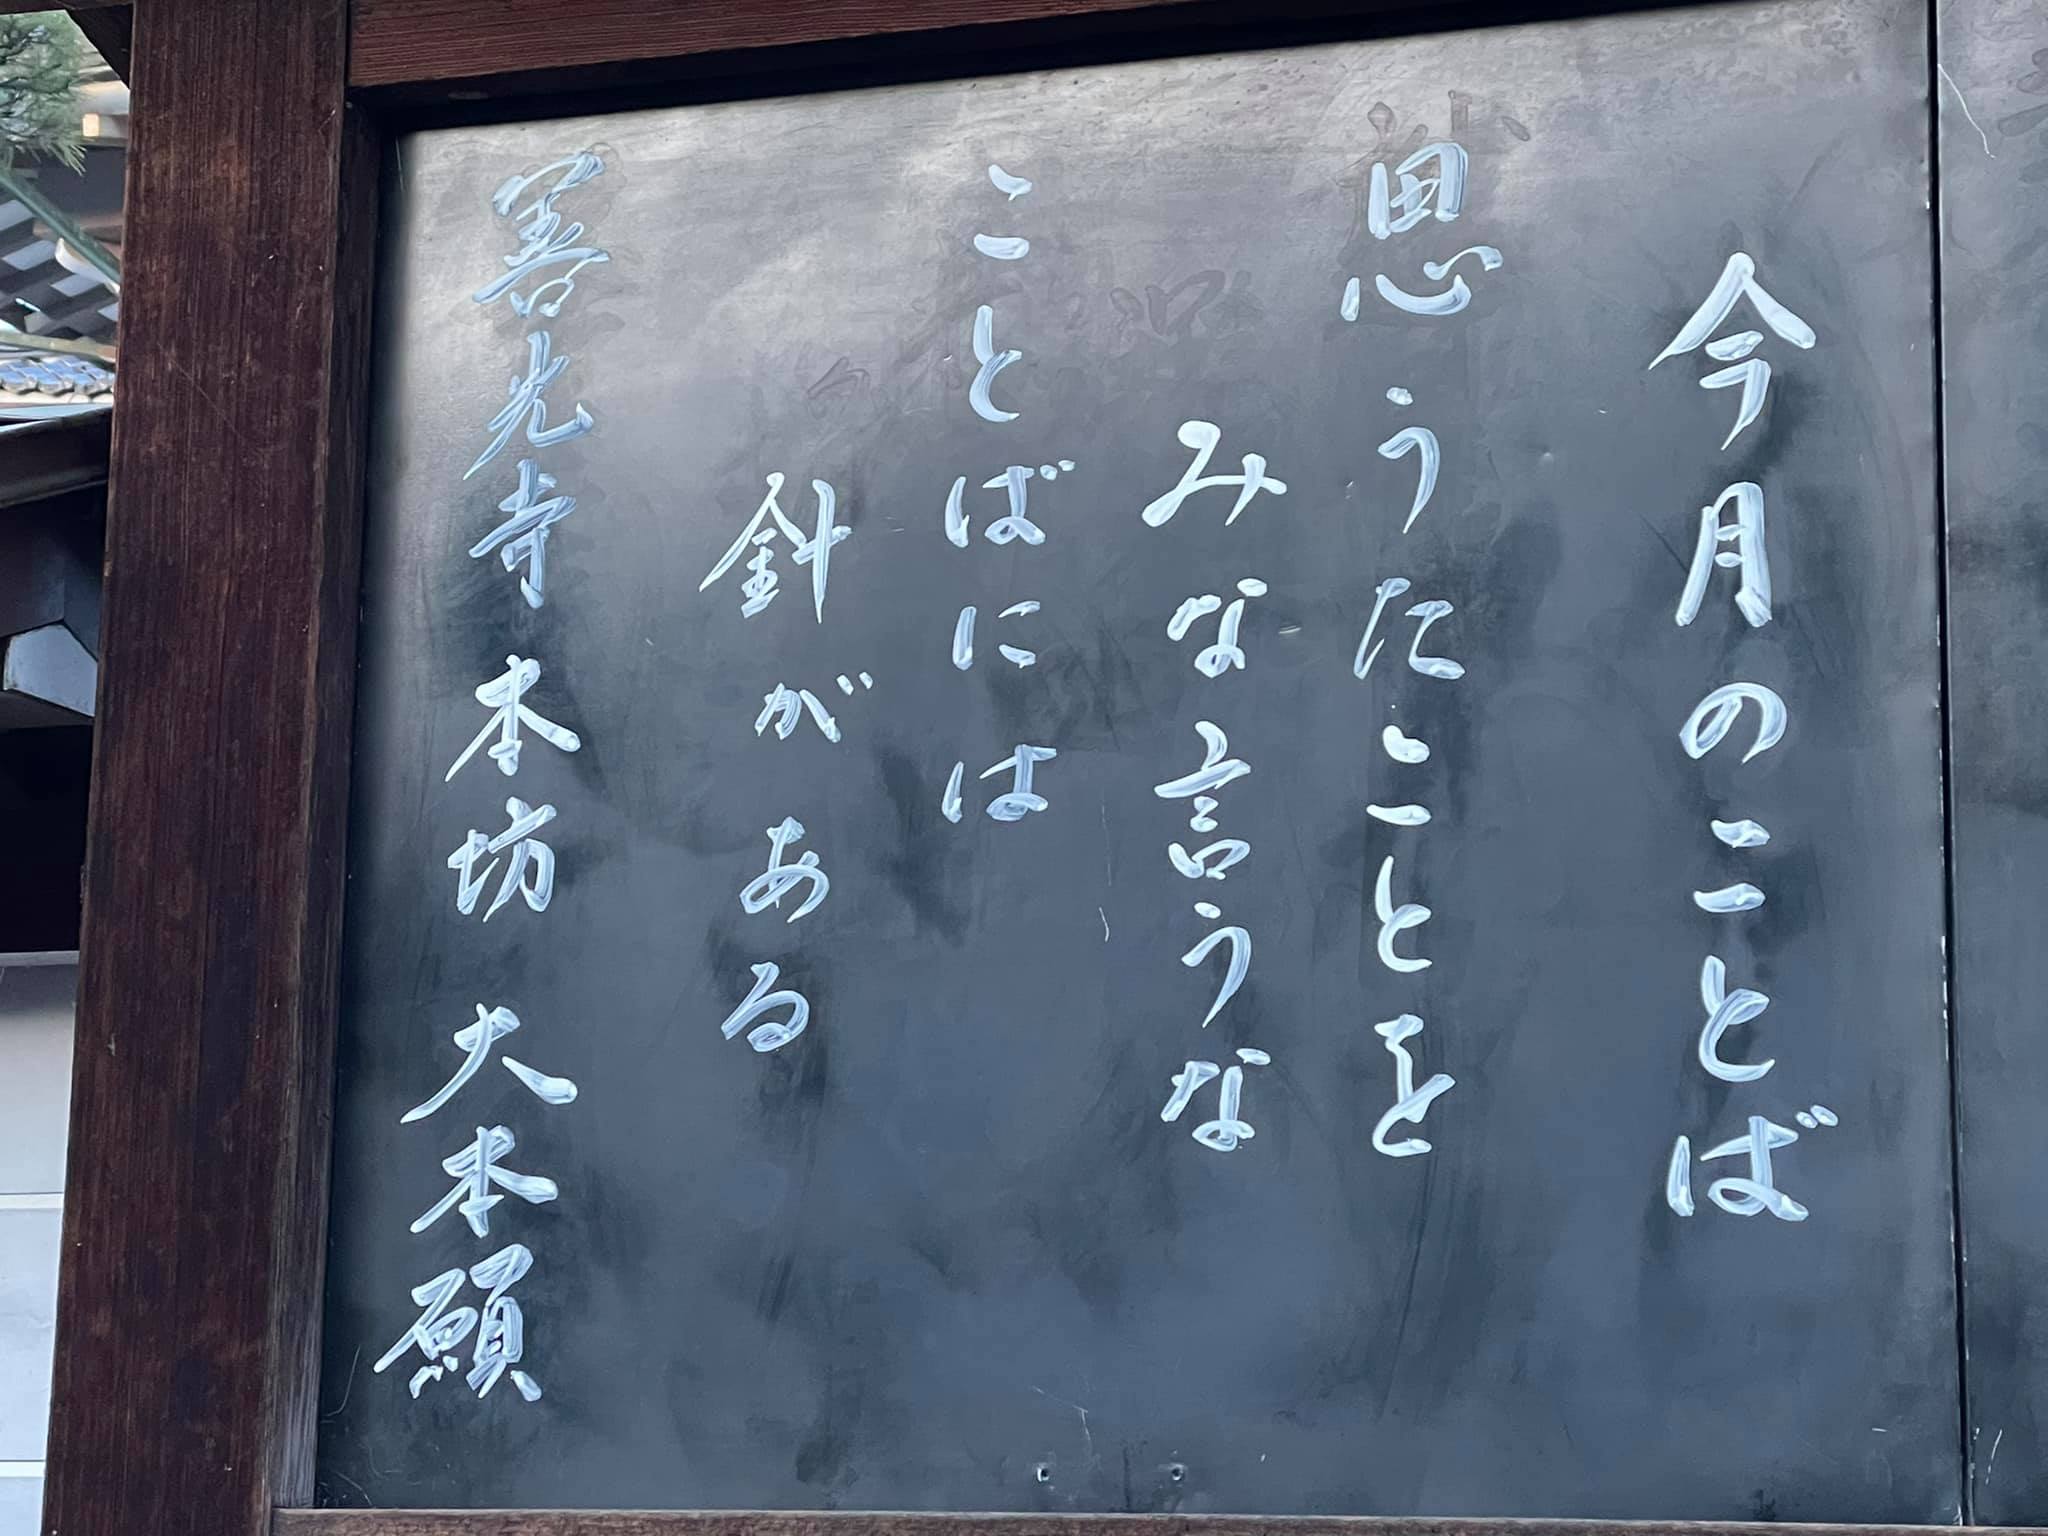 今月のことば
思うたことを
みな言うな
ことばには
針がある
善光寺本坊 大本願